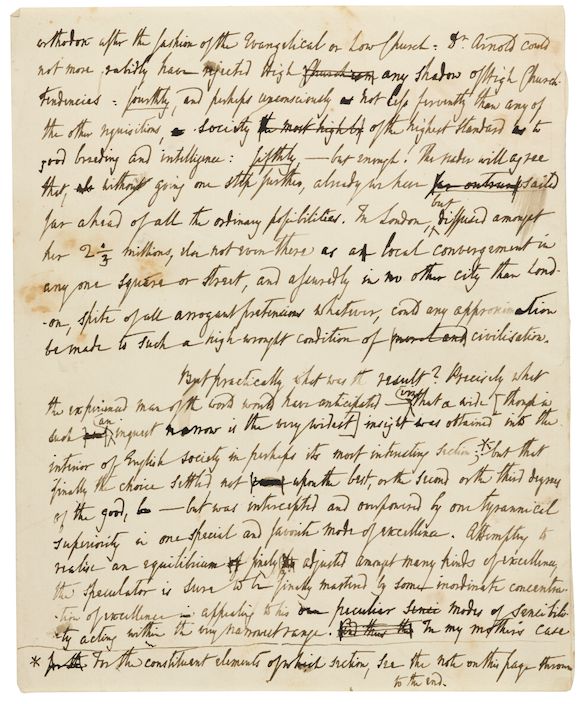 orthodox after the fashion of the Evangelical or Low Church: Dr. Arnold could
not more rabidly have rejected High Churchism any shadow of High Church
tendencies: fourthly, and perhaps unconsciously as not less fervently than any of
the other requisitions, a society the most highly of the highest standard as to
good breeding and intelligence: fifthly, — but enough! The reader will agree
that, without going one step further, already we have far outrun sailed
far ahead of all the ordinary possibilities. In London, but diffused amongst
her 2 1/3 millions, else not even there as a local convergement in
any one square or street, and assuredly in no other city than Lond-
-on, spite of all arrogant pretensions whatever, could any approximation
be made to such a high wrought condition of moral and civilisation.
But practically what was the result? Precisely what
the experienced man of the world would have anticipated — viz that a wide [though in
such an inquest narrow is the very widest] insight was obtained into the
interior of English society in perhaps its most interesting section;* but that
finally the choice settled not upon the best, or the second or the third degree
of the good, — but was intercepted and overpowered by one tyrannical
superiority in one special and favorite mode of excellence. Attempting to
realise an equilibrium finely adjusted amongst many kinds of excellence,
the speculator is sure to be finally mastered by some inordinate concentra-
tion of excellence — appealing to his own peculiar modes of sensibili-
ty acting within the very narrowest range. And thus the In my mother's case
* for the For the constituent elements of which section, see the note on this page thrown
to the end.